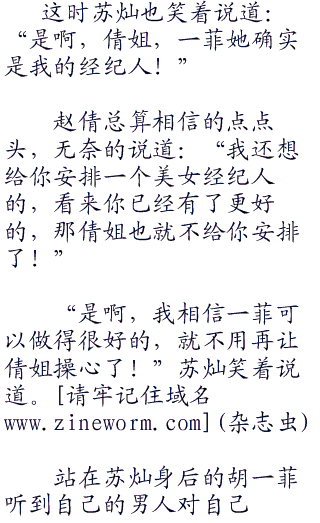 这时苏灿也笑着说道：
“是啊，倩姐，一菲她确实
是我的经纪人！”
赵倩总算相信的点点
头，无奈的说道：“我还想
给你安排一个美女经纪人
的，看来你已经有了更好
的，那倩姐也就不给你安排
了！”
“是啊，我相信一菲可
以做得很好的，就不用再让
倩姐操心了！”苏灿笑着说
道。[请牢记住域名
www.zineworm.com](杂志虫)
站在苏灿身后的胡一菲
听到自己的男人对自己